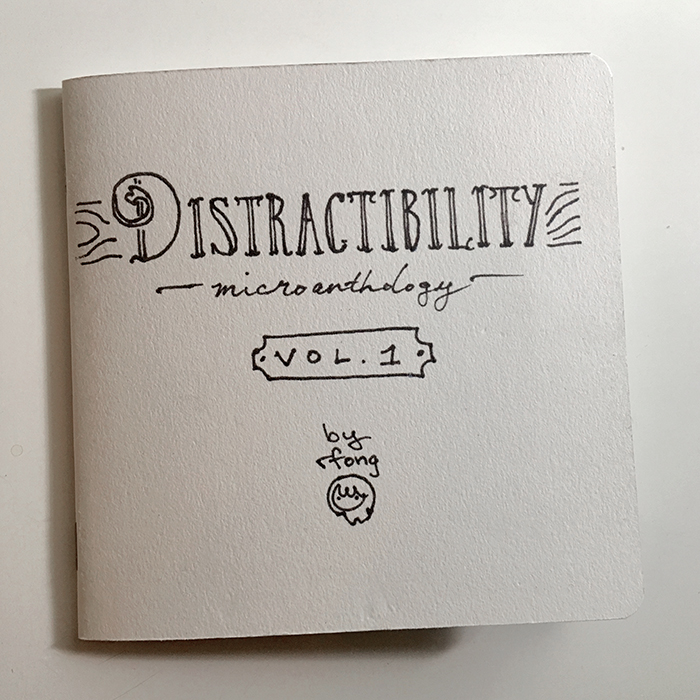 DISTRACTIBILITY
microanthology
VOL. 1
by
fong